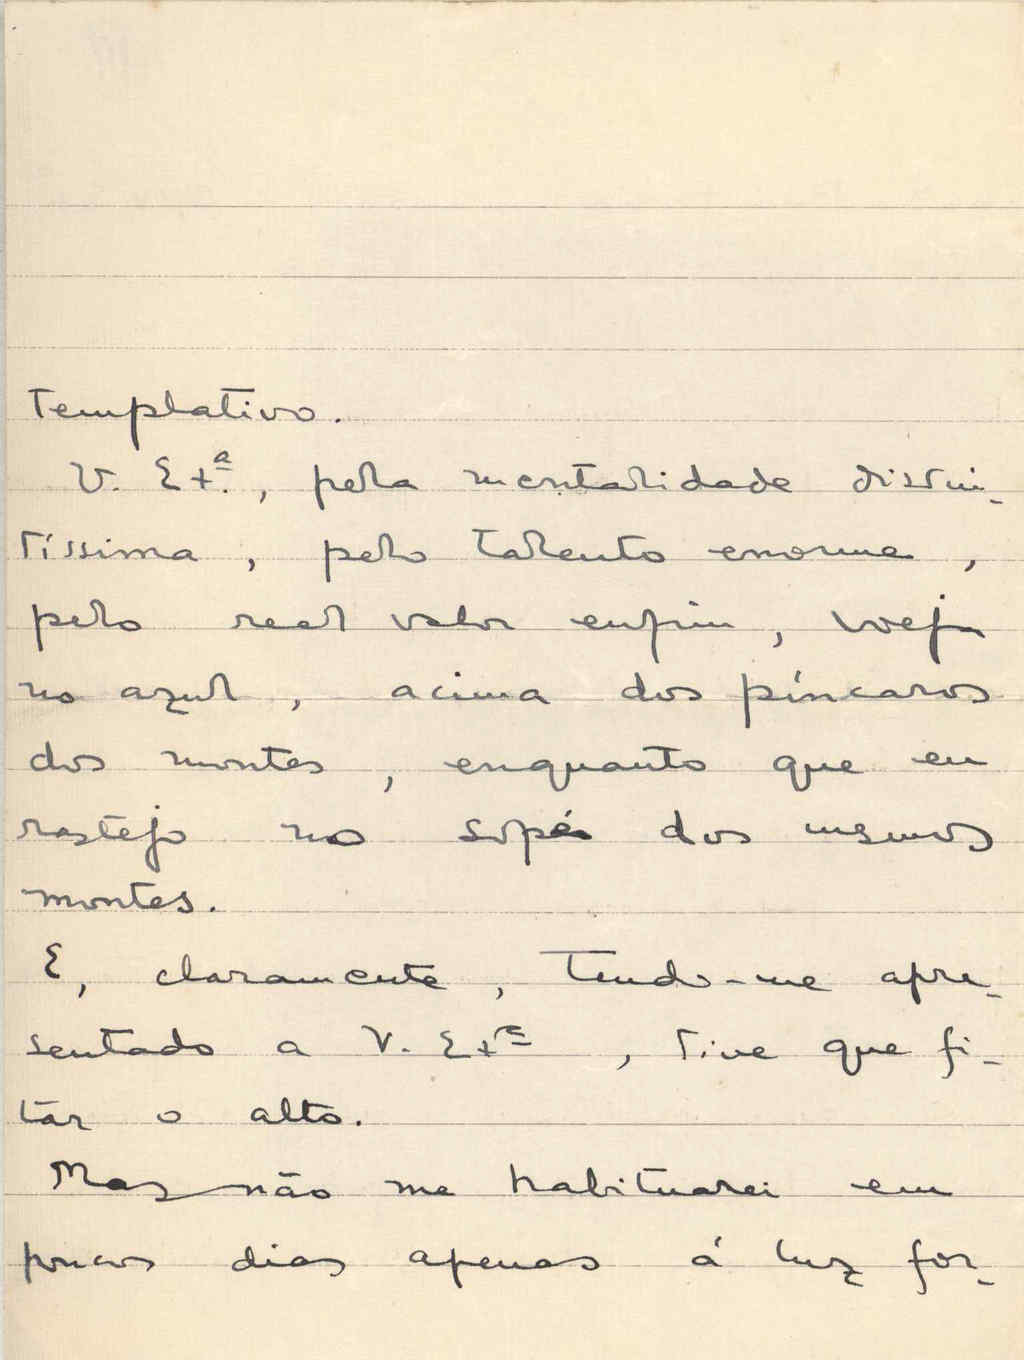 templativo.
V. Ex.ª, pela mentalidade distin-
tíssima, pelo talento enorme,
pelo real valor enfim, voeja
no azul, acima dos píncaros
dos montes, enquanto que eu
rastejo no sopé dos mesmos
montes.
E, claramente, tendo-me apre-
sentado a V. Exª, tive que fi-
tar o alto.
Mas não me habituarei em
poucos dias apenas á luz for-